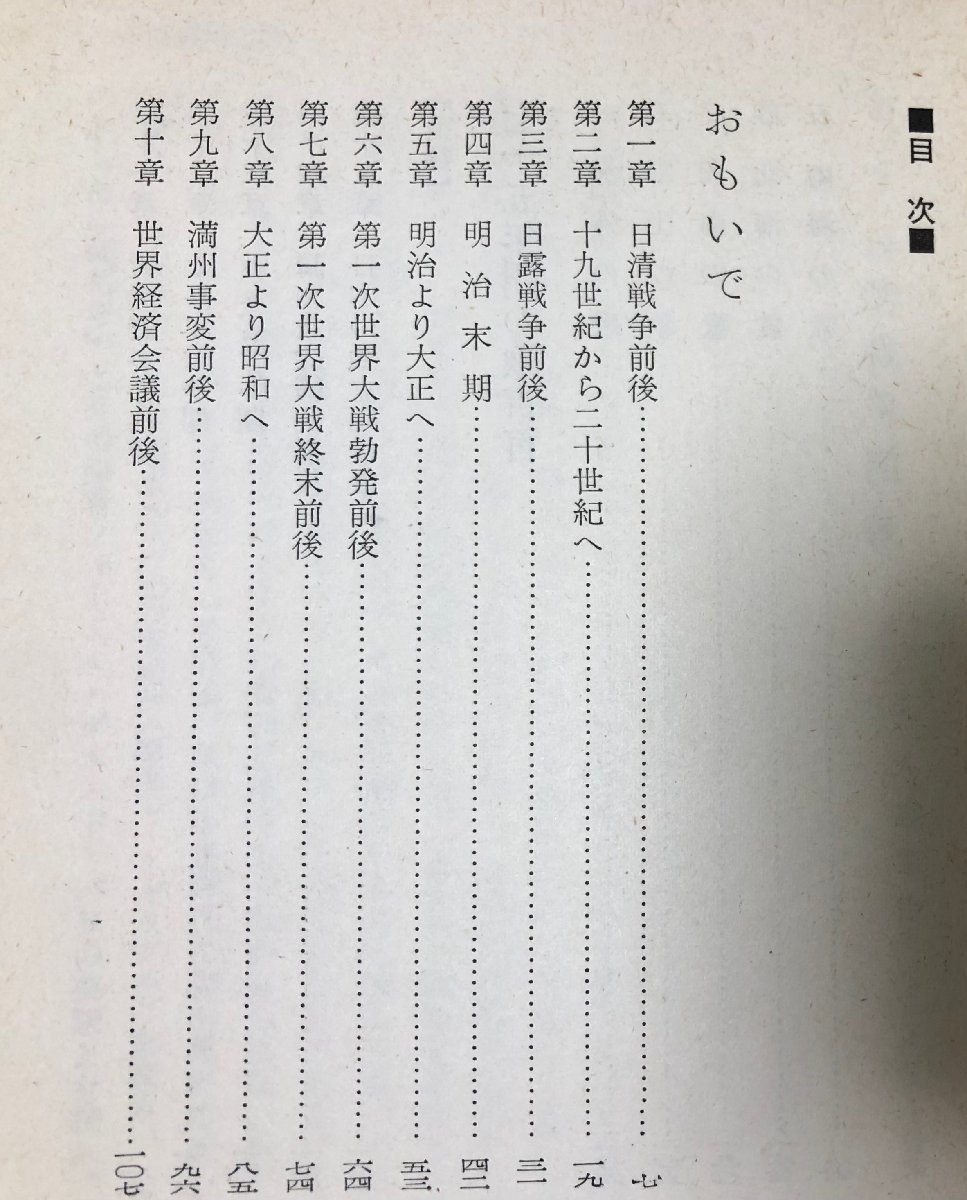 ■目次■
おもいで
第一章 日清戦争前後……………………七
第二章 十九世紀から二十世紀へ……………………一九
第三章 日露戦争前後……………………三一
第四章 明治末期……………………四二
第五章 明治より大正へ……………………五三
第六章 第一次世界大戦勃発前後……………………六四
第七章 第一次世界大戦終末前後……………………七四
第八章 大正より昭和へ……………………八五
第九章 満州事変前後……………………九六
第十章 世界経済会議前後……………………一〇七